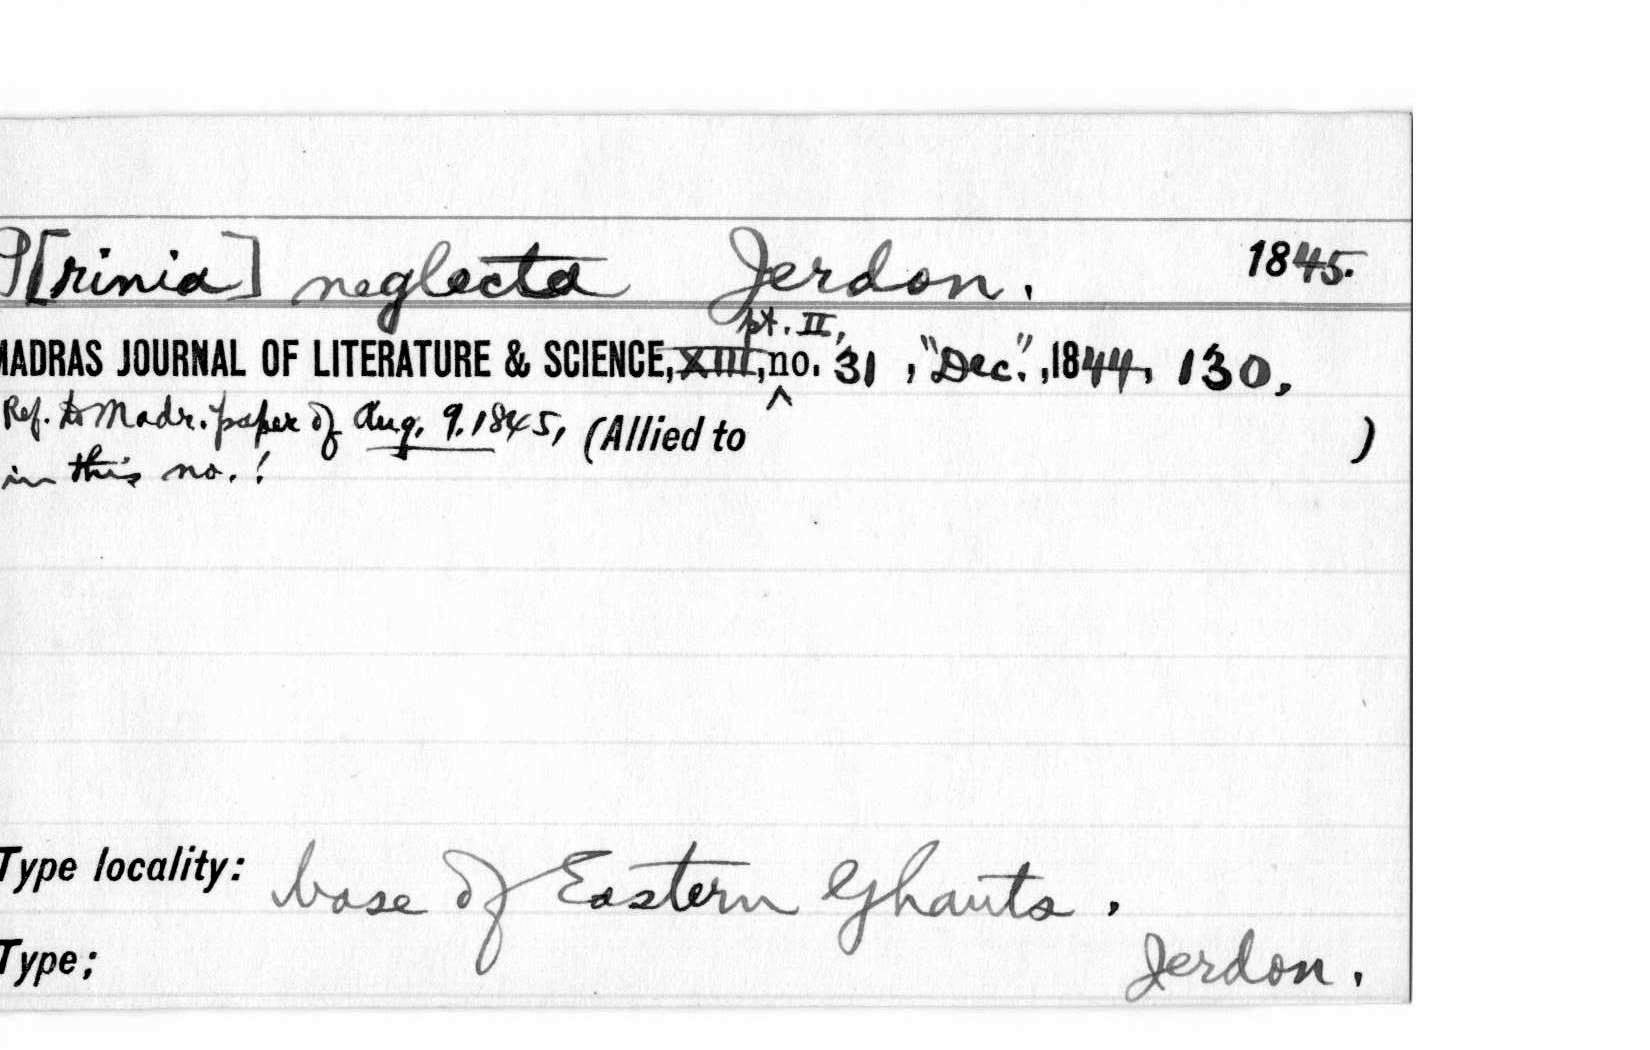 P[rinia] neglecta Jerdon. 1845.
pt. II,
MADRAS JOURNAL OF LITERATURE & SCIENCE, XIII, no. 31, "Dec.", 1844, 130,
Ref. to Madr. paper of Aug. 9. 1845, (Allied to )
in this no.!
Type locality: base of Eastern Ghauts.
Type; Jerdon.